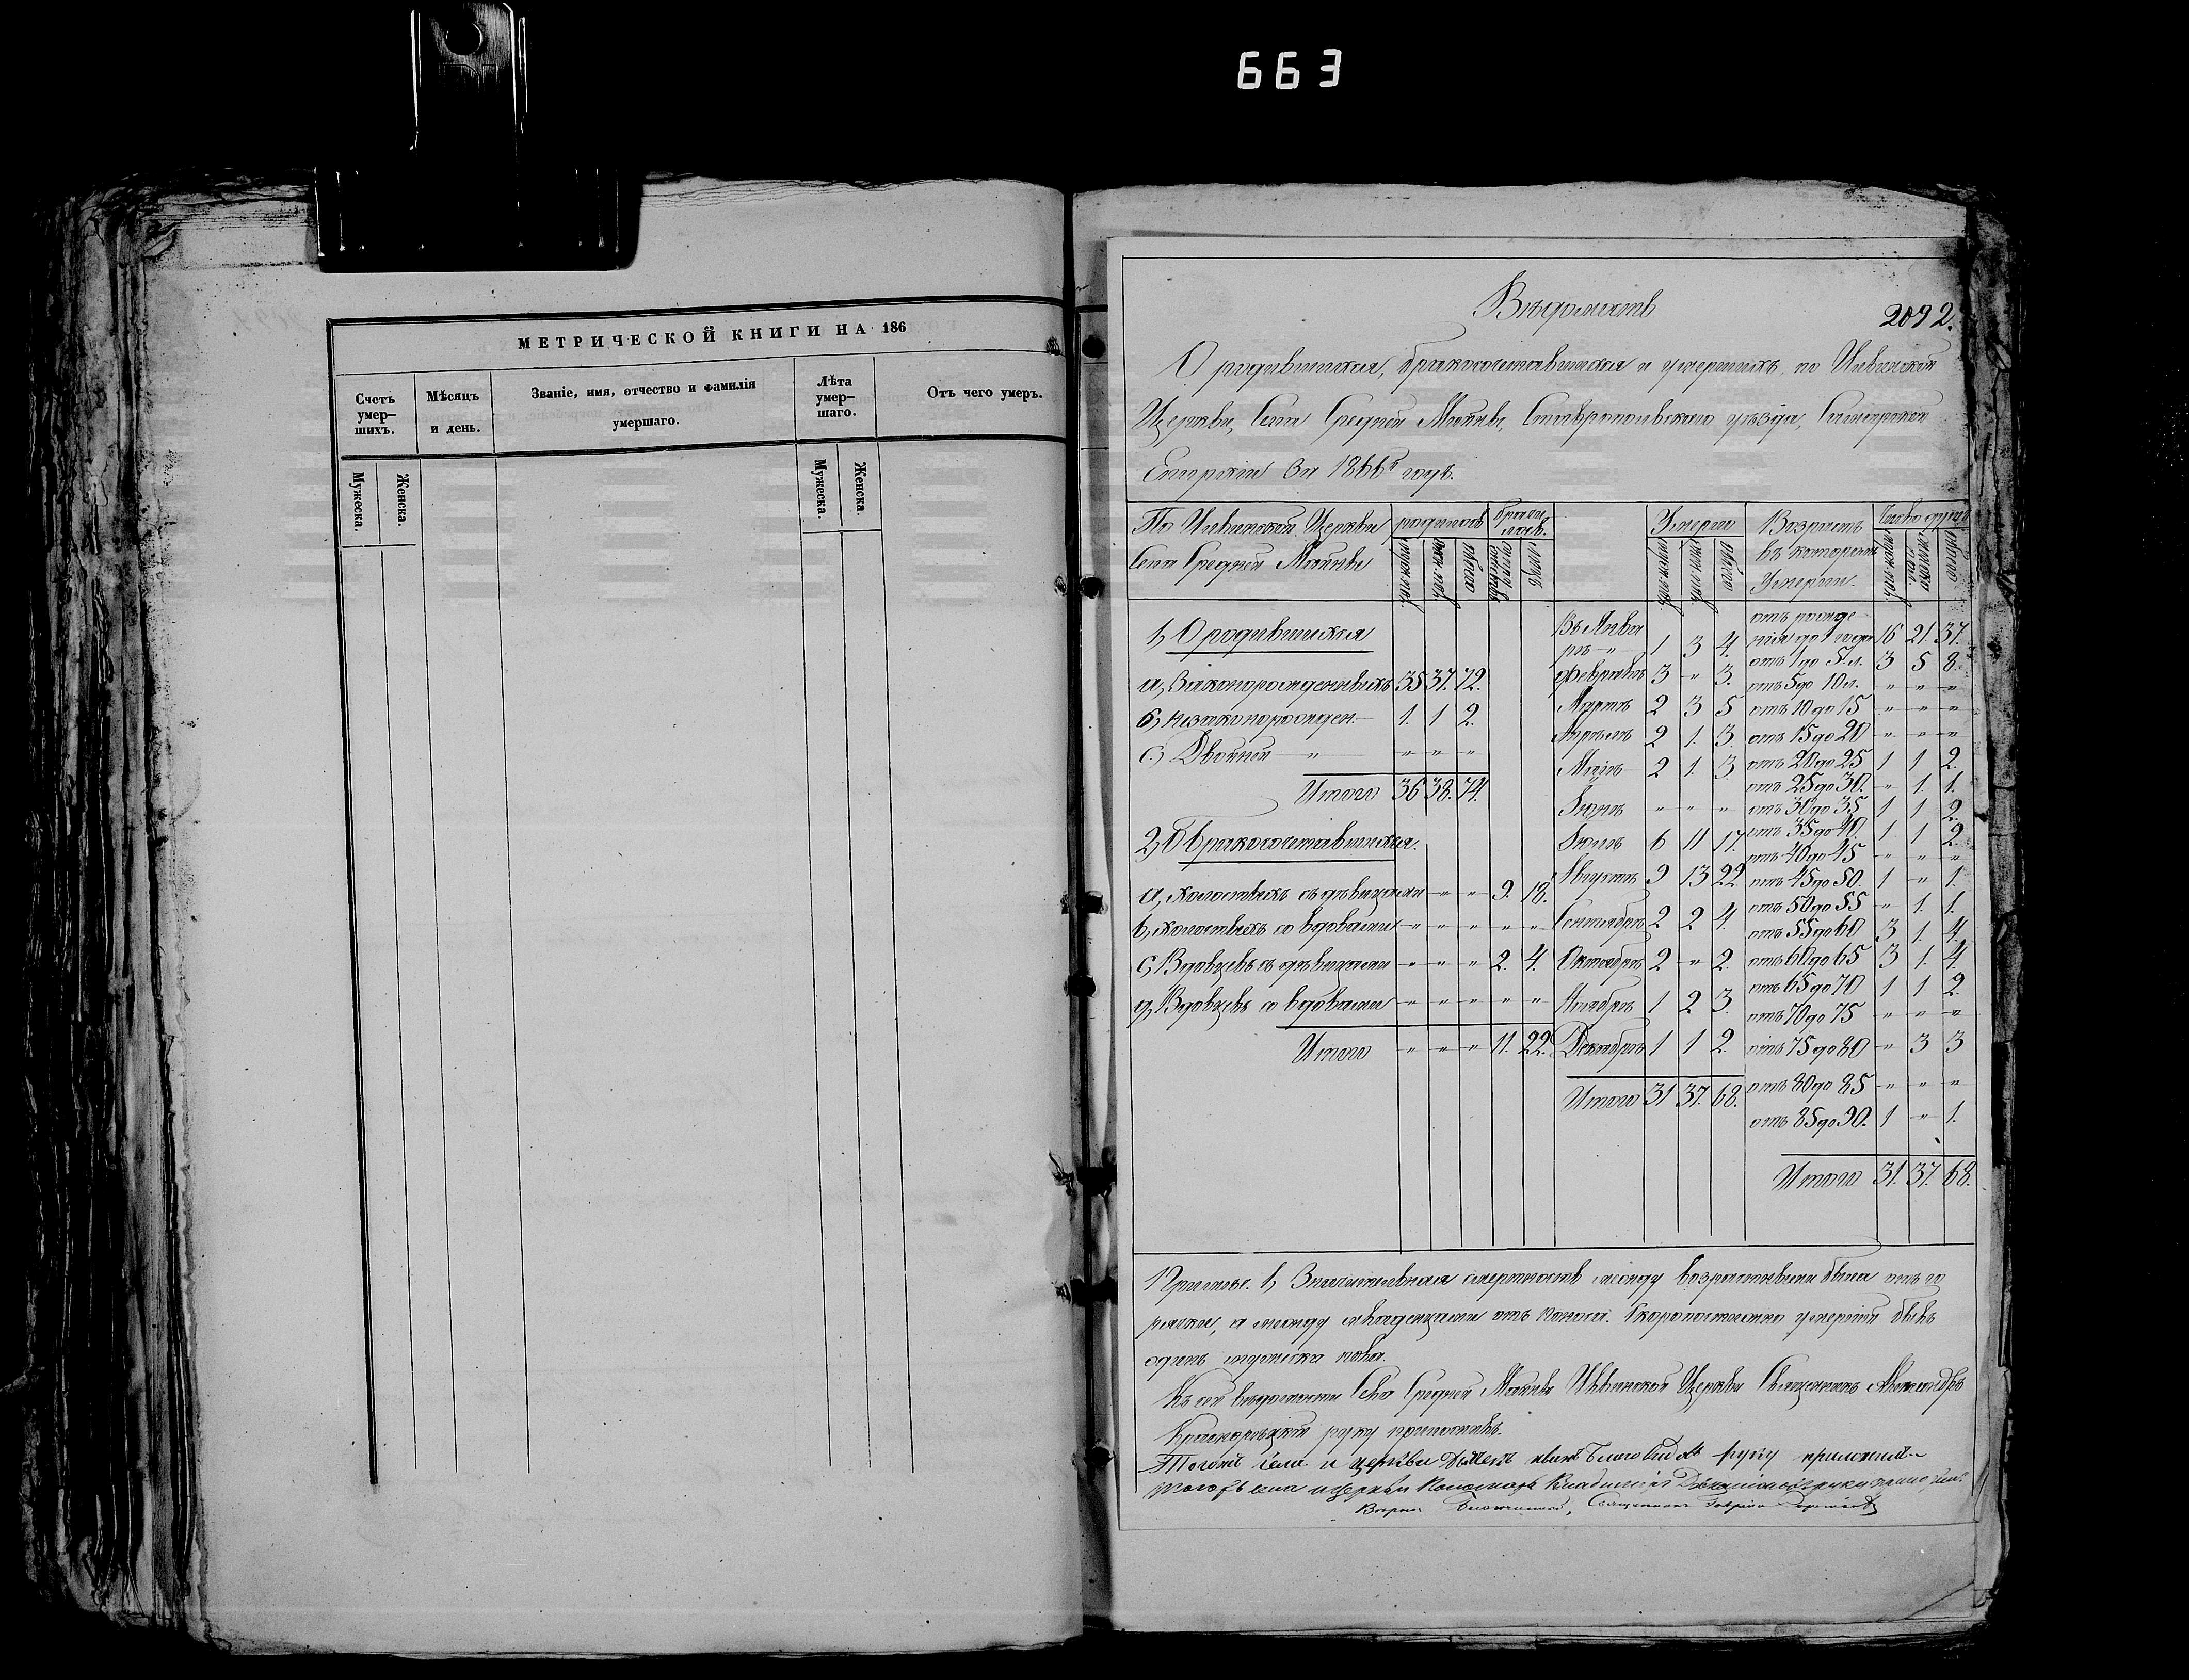 663
МЕТРИЧЕСКОЙ КНИГИ НА 186
Счетъ умер-шихъ.
Мѣсяцъ и день.
Званіе, имя, отчество и фамилія умершаго.
Лѣта умер-шаго.
Отъ чего умеръ.
Мужеска.
Женска.
Мужеска.
Женска.
Вѣдомость
2092.
О родившихся, бракосочетавшихся и умершихъ, по
Церкви, Села Средней Ставропольскаго уѣзда, Самарской
Епархіи за 1866й годъ.
Церкви
Села Средней
родилось
муж. пол.
жен. пол.
всего
Умерло
муж. пол.
жен. пол.
всего
Возрастъ
въ которомъ
Умерли.
Число душъ
муж. пол.
женска пол.
всего
1, О родившихся
а, Законорожденныхъ 35 37. 72.
б, незаконорожден. 1. 1 2.
с, Двойней " " " "
Итого 36 38. 74.
2, О бракосочетавшихся.
а, холостыхъ съ дѣвицами " " 9. 18.
в, холостыхъ со вдовами " " " " "
с, Вдовцевъ съ дѣвицами " " " 2. 4.
д, Вдовцевъ со вдовами " " " " "
Итого " " " 11. 22.
Въ Янва
рѣ " 1 3 4.
Февралѣ 3 " 3.
Мартѣ 2 3 5
Апрѣлѣ 2 1. 3.
Маіѣ 2 1. 3.
Іюнѣ " " "
Іюлѣ 6 11 17.
Августѣ 9 13 22.
Сентябрѣ 2 2 4.
Октябрѣ 2 " 2.
Ноябрѣ 1 2 3.
Декабрѣ 1 1 2.
Итого 31 37. 68.
отъ рожде-
нія до 1 года 16 21. 37.
отъ 1 до 5 л. 3 5 8.
отъ 5 до 10 л. " " "
отъ 10 до 15 " " "
отъ 15 до 20 " " "
отъ 20 до 25 1 1 2.
отъ 25 до 30. " 1. 1.
отъ 30 до 35 1 1 2.
отъ 35 до 40. 1. 1 2.
отъ 40 до 45 " " "
отъ 45 до 50. 1 " 1.
отъ 50 до 55 " 1. 1.
отъ 55 до 60 3 1. 4.
отъ 60 до 65 3 1. 4.
отъ 65 до 70 1 1 2.
отъ 70 до 75 " " "
отъ 75 до 80 " 3 3
отъ 80 до 85 " " "
отъ 85 до 90. 1 " 1.
Итого 31. 37. 68.
1, Значительная смертность между возрастными была отъ го
рячки, а между младенцами отъ поноса. Скоропостижно умершій былъ
одинъ мужеска пола.
Къ сей вѣдомости Села Средней Церкви Священникъ Александръ
руку приложилъ.
Тогожъ села и церкви руку приложилъ
села и церкви Пономарь руку приложилъ.
Священникъ